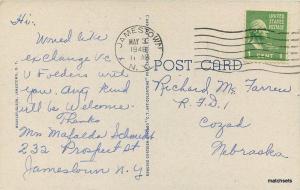 Hi:
Would like
exchange Vc
U Folders with
you. Any kind
will be Welcome.
Thanks
Mrs Mafalda Schmidt
232 Prospect St
Jamestown N.Y
JAMESTOWN
MAY 3
1948
N.Y.
1 CENT 1
POST CARD
Richard Mc Farren
R.F.D 1
Cozad
Nebraska
matchsets